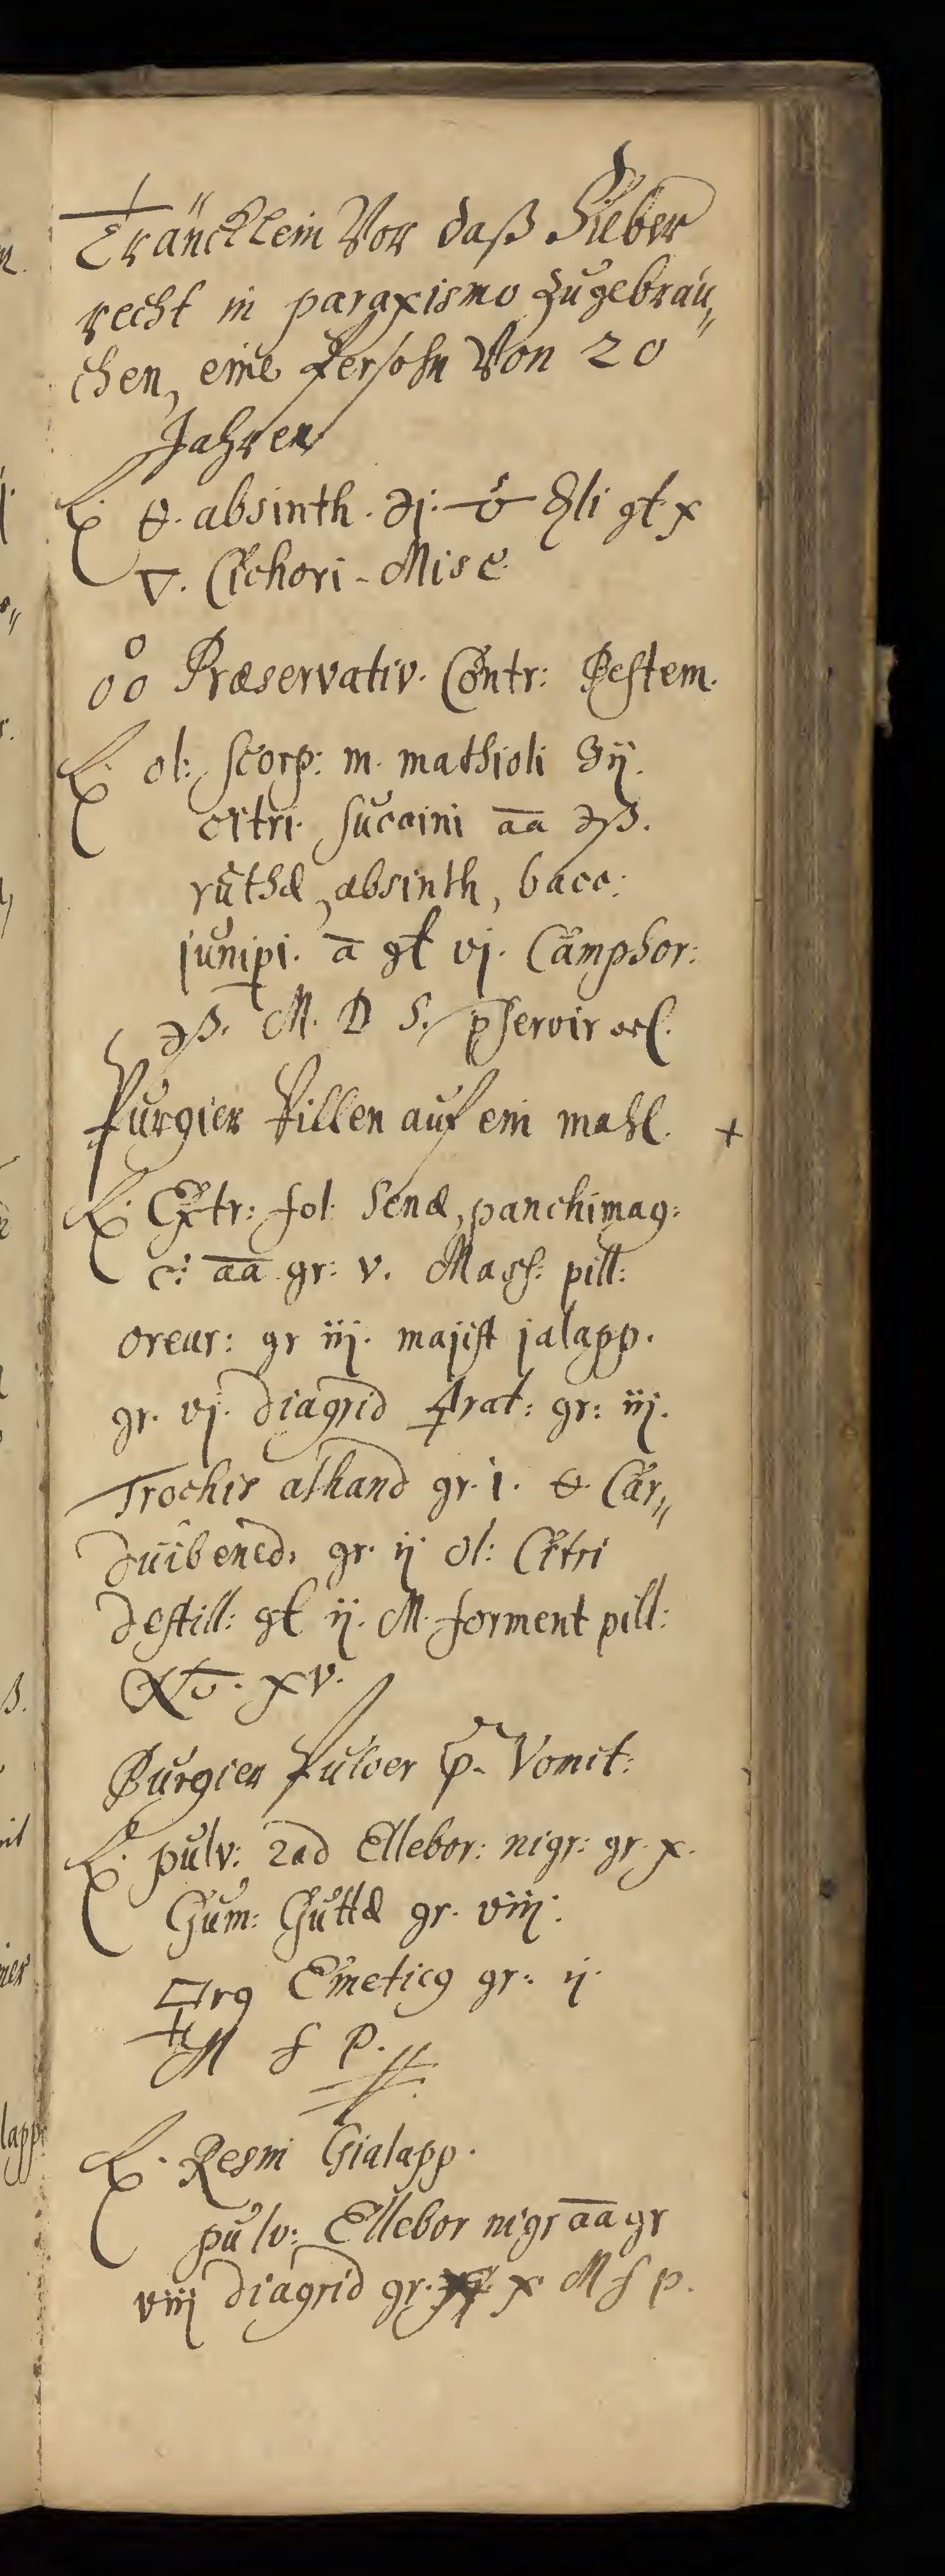 Träncklein Vor daß Fieber
recht in paraxismo zugebrau„
chen, eine Persohn Von 20
Jahren
℞. 🜔. absinth. ℈j. 🜊li gt x
🜄. Cichori - Misc.
o
oo Præservativ. Contr: Pestem.
℞. ol: scorp: m. mathioli ʒij.
citri. succini āā ℈ß.
ruthæ, absinth, bacc:
junipi. ā gt vj. Camphor:
℈ß. M. D S.
Purgier Pillen auf ein mahl. +
℞. Extr: fol. Senæ, panchimag:
c: āā gr: v. Mass: pill:
gr iij. majist jalapp.
gr. vj. diagrid 🜍rat: gr: iij.
Trochis alhand gr. i. 🜔. Car„
duibened. gr. ij ol: Citri
destill: gt ij. M. forment pill:
No. xv.
Purgier Pulver p. Vomit:
℞. pulv: rad Ellebor: nigr: gr. x.
Gum: Guttæ gr. viij.
Emeticꝰ gr: ij.
M f P.
℞. Resin Gialapp.
pulv: Ellebor nigr āā gr
viij diagrid gr. x M f p.